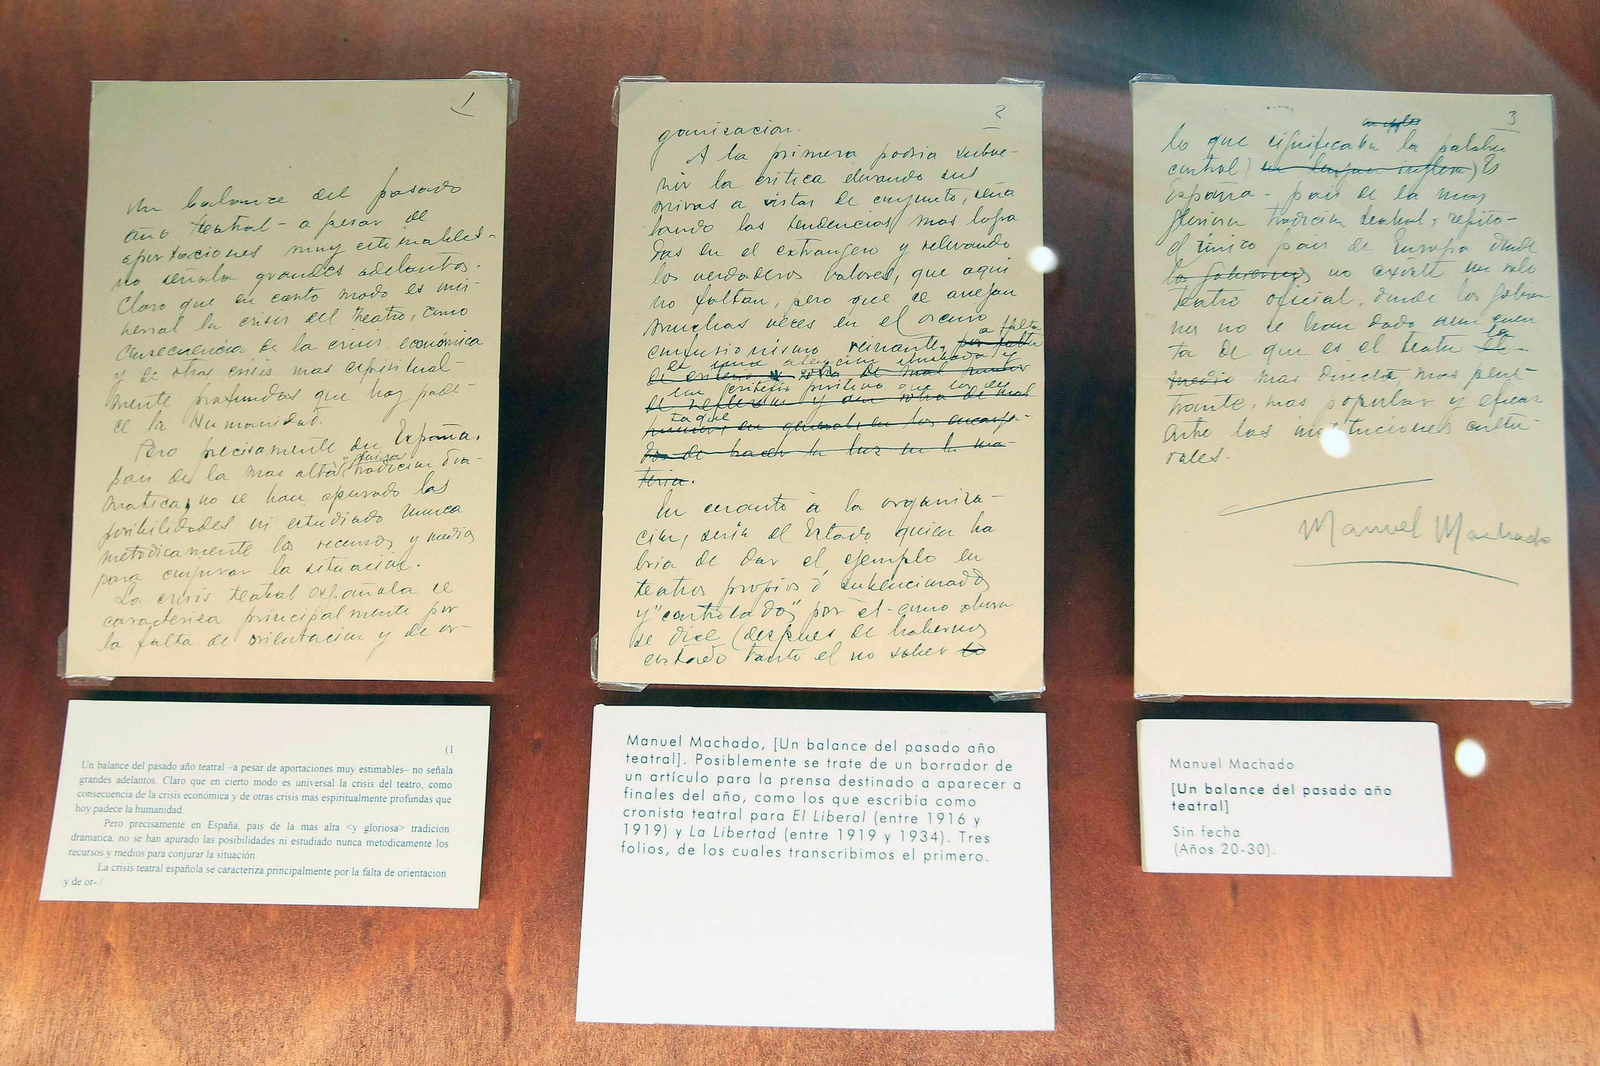 1
Un balance del pasado
año teatral - a pesar de
aportaciones muy estimables -
no señala grandes adelantos.
Claro que en cierto modo es uni-
versal la crisis del teatro, como
consecuencia de la crisis económica
y de otras crisis mas espiritual-
mente profundas que hoy pade-
ce la Humanidad.
Pero precisamente en España,
pais de la mas alta y gloriosa tradicion dra-
matica, no se han apurado las
posibilidades ni estudiado nunca
metodicamente los recursos y medios
para conjurar la situacion.
La crisis teatral española se
caracteriza principalmente por
la falta de orientacion y de or-
2
ganizacion.
A la primera podria subve-
nir la critica elevando sus
miras a vistas de conjunto, seña
lando las tendencias mas logra
das en el extrangero y relevando
los verdaderos valores, que aqui
no faltan, pero que se anejan
muchas veces en el oscuro
confusionismo reinante, por falta a falta
de criterio y
de reflexion y
en general, en los encarga-
dos de hacer la luz en la ma-
teria.
En cuanto à la organiza-
cion, seria el Estado quien ha
bria de dar el ejemplo en
teatros propios ó subencionados
y "controlados" por él - como ahora
se dice (despues de habernos
costado tanto el no saber lo
3
lo que significaba la palabra
control) en lengua inglesa) Es
España - pais de la mas
gloriosa tradicion teatral, repito -
el único pais de Europa donde
los gobiernos no existe un solo
teatro oficial, donde los gobier
nos no se han dado aun cuen
ta de que es el teatro el la
medio mas directa, mas pene-
trante, mas popular y eficaz
entre las instituciones cultu-
rales.
Manuel Machado
(1
Un balance del pasado año teatral –a pesar de aportaciones muy estimables– no señala
grandes adelantos. Claro que en cierto modo es universal la crisis del teatro, como
consecuencia de la crisis económica y de otras crisis mas espiritualmente profundas que
hoy padece la humanidad.
Pero precisamente en España, pais de la mas alta <y gloriosa> tradicion
dramatica, no se han apurado las posibilidades ni estudiado nunca metodicamente los
recursos y medios para conjurar la situación.
La crisis teatral española se caracteriza principalmente por la falta de orientacion
y de or- /
Manuel Machado, [Un balance del pasado año
teatral]. Posiblemente se trate de un borrador de
un artículo para la prensa destinado a aparecer a
finales del año, como los que escribía como
cronista teatral para El Liberal (entre 1916 y
1919) y La Libertad (entre 1919 y 1934). Tres
folios, de los cuales transcribimos el primero.
Manuel Machado
[Un balance del pasado año
teatral]
Sin fecha
(Años 20-30).